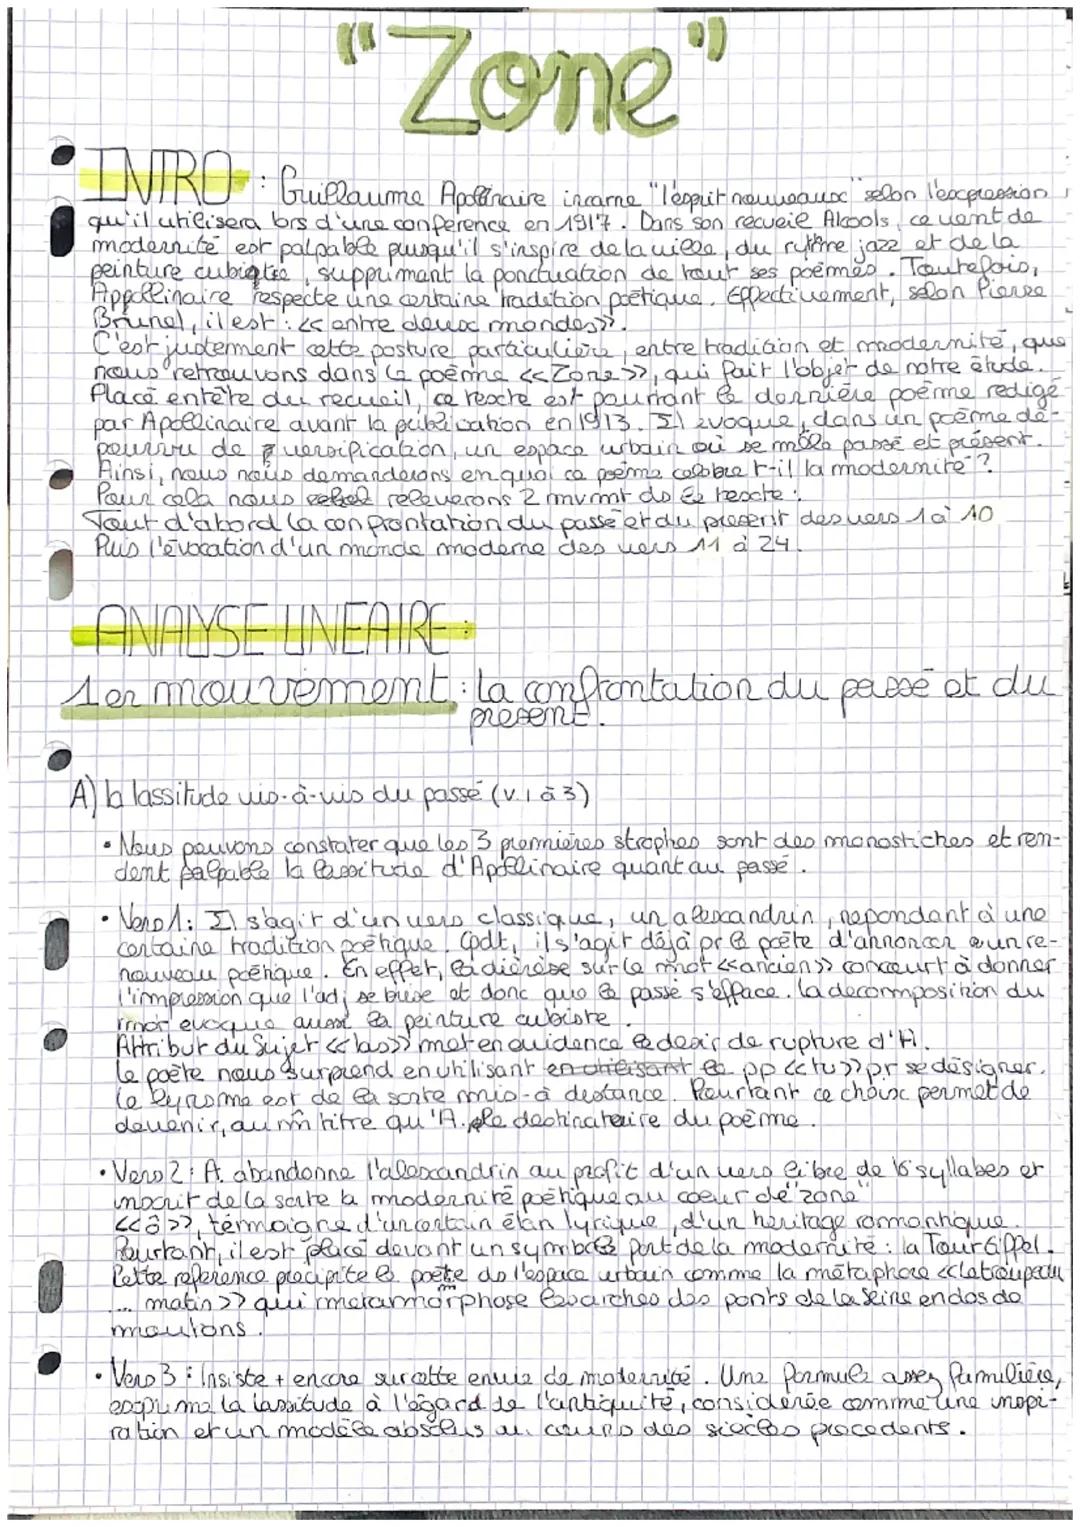 "Zone"
INTRO : Guillaume Apollinaire incarne "l'esprit nouveaux" selon l'expression
qu'il utilisera lors d'une conférence en 1917. Dans son recueil Alcools, ce vent de
modernité est palpable puisqu'il s'inspire de la ville, du rythme jazz et de la
peinture cubiste, supprimant la ponctuation de tout ses poèmes. Toutefois,
Appollinaire respecte une certaine tradition poétique. Effectivement, selon Pierre
Brunel, il est : << entre deux mondes>>.
C'est justement cette posture particulière, entre tradition et modernité, que
nous retrouvons dans le poème <<Zone>>, qui fait l'objet de notre étude.
Placé entête du recueil, ce texte est pourtant le dernière poème redigé
par Apollinaire avant la publication en 1913. Il évoque, dans un poème dé-
pourvu de versification, un espace urbain où se mêle passé et présent.
Ainsi, nous nous demanderons en quoi ce poème célèbre t-il la modernité ?
Pour cela nous relèverons 2 mvmnt ds le texte :
Tout d'abord la confrontation du passé et du présent des vers 1 à 10
Puis l'évocation d'un monde moderne des vers 11 à 24.
ANALYSE LINEAIRE :
1er mouvement : la confrontation du passé et du
présent.
A) la lassitude vis-à-vis du passé (v.1 à 3)
• Nous pouvons constater que les 3 premières strophes sont des monostiches et ren-
dent palpable la lassitude d'Apollinaire quant au passé.
• Vers 1 : Il s'agit d'un vers classique, un alexandrin, repondant à une
certaine tradition poétique. Cpdt, il s'agit déjà pr le poète d'annoncer un re-
nouveau poétique. En effet, la diérèse sur le mot <<ancien>> concourt à donner
l'impression que l'adj se brise et donc que le passé s'efface. la decommposition du
mot evoque aussi la peinture cubiste.
Attribut du Sujet <<las>> met en évidence le desir de rupture d'A.
le poète nous surprend en utilisant en utilisant le pp <<tu>> pr se désigner.
Le lyrisme est de la sorte mis-à distance. Pourtant ce choix permet de
devenir, au m̂ titre qu'A. le destinataire du poème.
• Vers 2 : A. abandonne l'alexandrin au profit d'un vers libre de 16 syllabes et
inscrit de la sorte la modernité poétique au coeur de "zone"
<<ô>>, témoigne d'un certain élan lyrique, d'un héritage romantique.
Pourtant, il est placé devant un symbole fort de la modernité : la Tour Eiffel.
Cette reference précipite le poète ds l'espace urbain comme la métaphore <<le troupeau
... matin>> qui métamorphose les arches des ponts de la Seine en dos de
moutons.
• Vers 3 : Insiste + encore sur cette envie de modernité. Une formule assez familière,
exprime la lassitude à l'égard de l'antiquité, considérée comme une inspi-
ration et un modèle absolus au cours des siècles precedents.